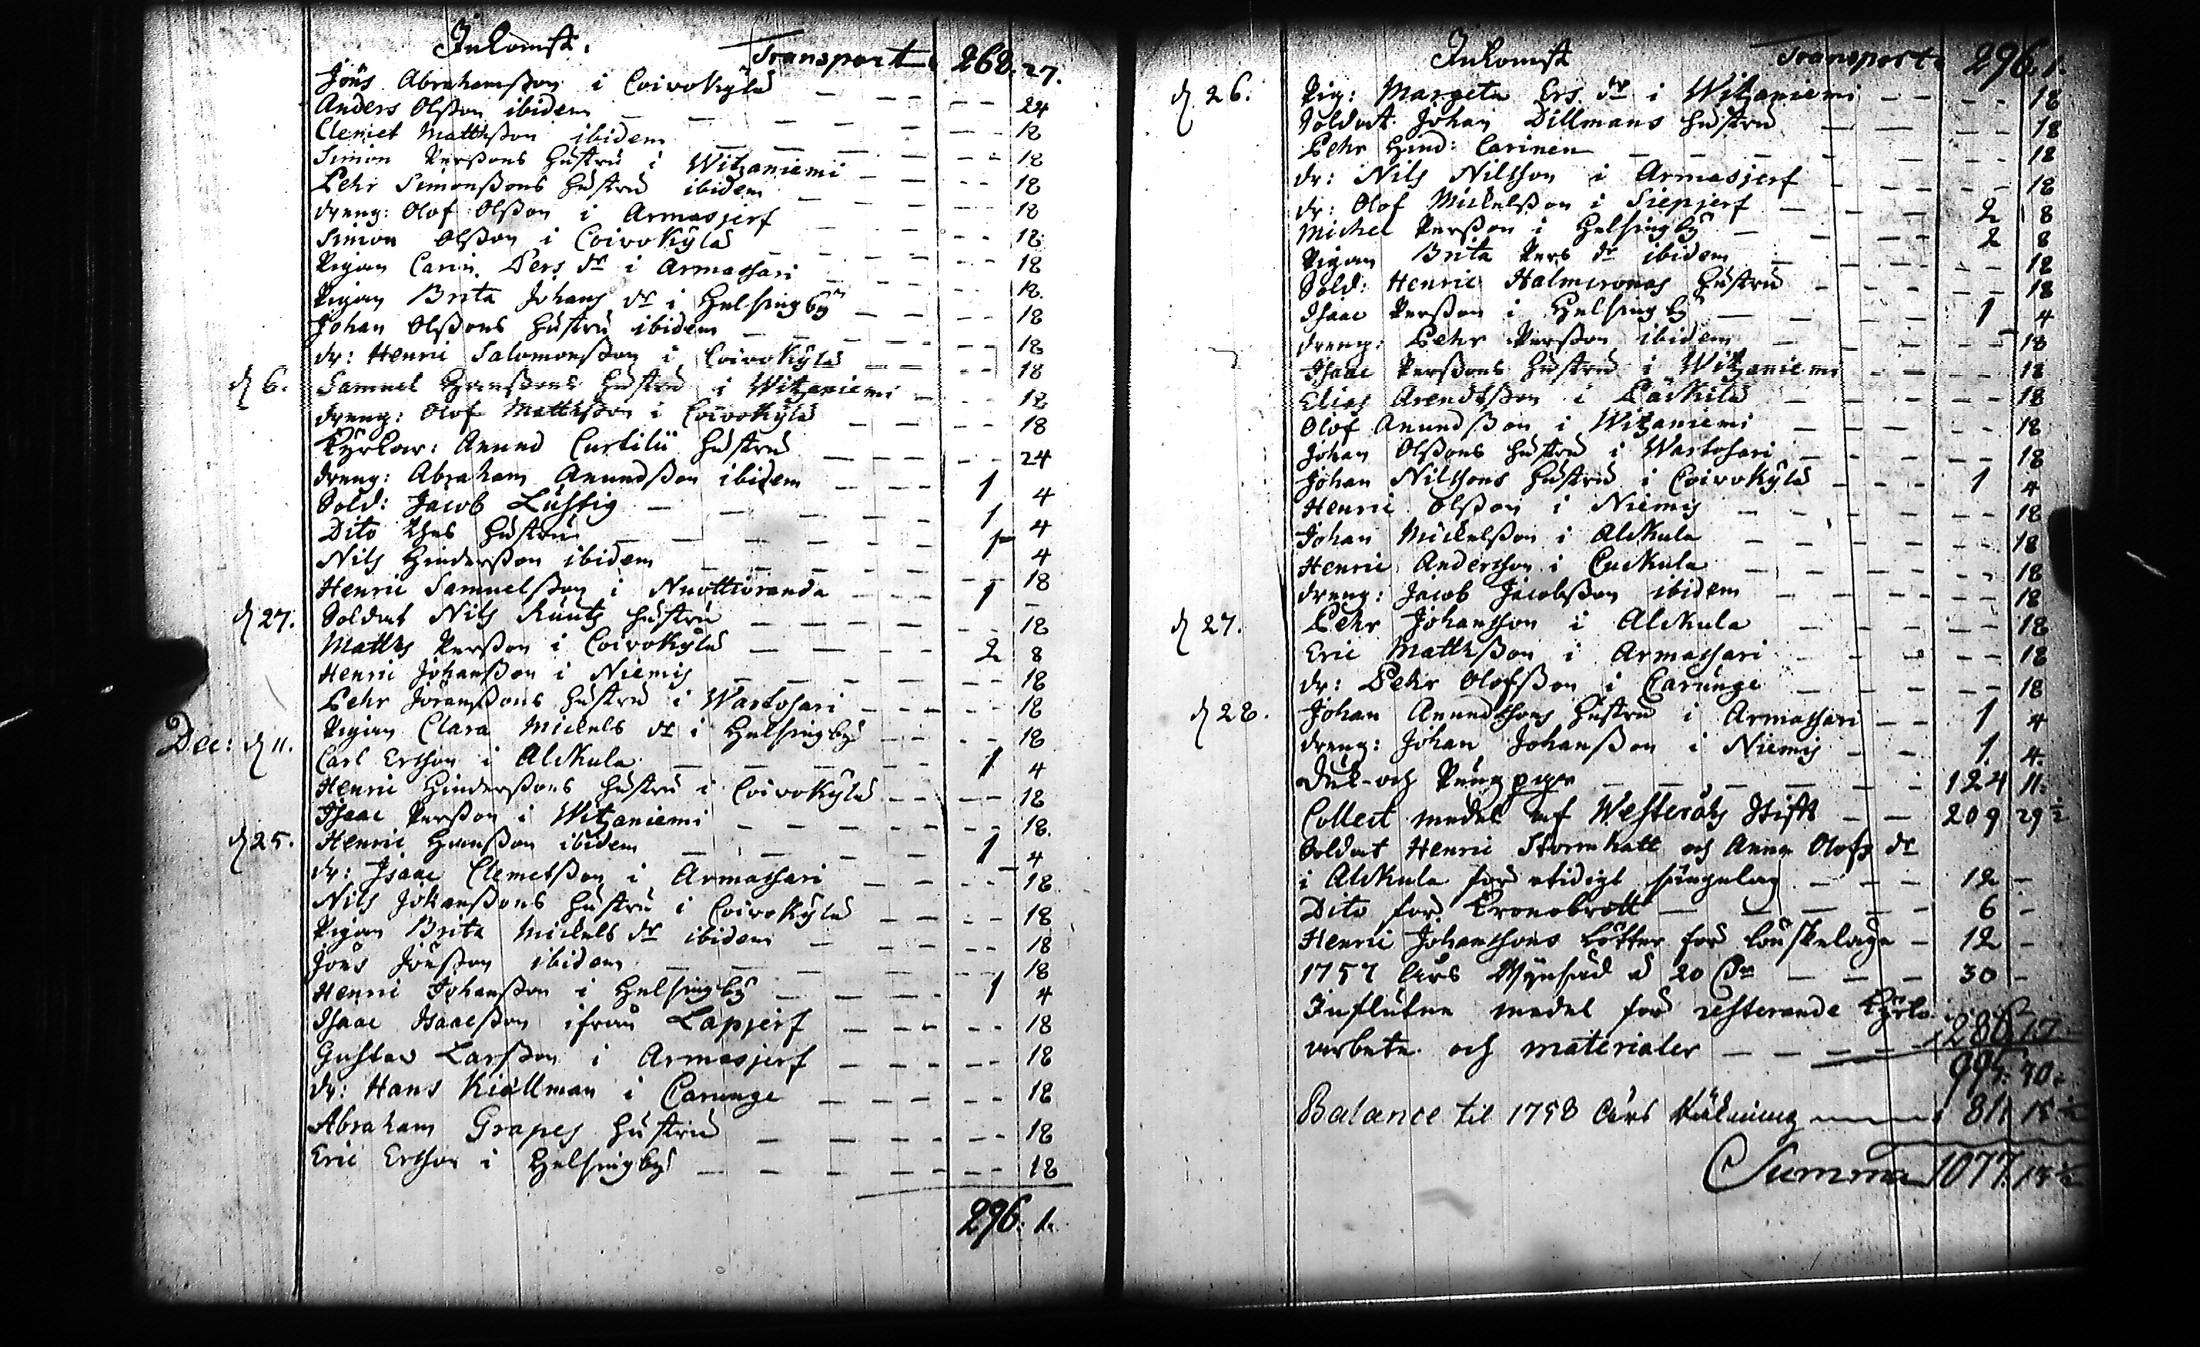 Inkomst. Transport 268. 27.
Jöns Abrahamsson i Coivokylä
Anders Olsson ibidem 24
Clemet Mattsson ibidem 18
Simon Persons hustru i Witzaniemi 18
Pehr Simonssons hustru ibidem 18
dreng: Olof Olsson i Armasjerf 18
Simon Olsson i Coivokylä 18
Pigan Carin Pers dr i Armassari 18
Pigan Brita Johans dr i Helsingby 18.
Johan Olssons hustru ibidem 18
dr: Henric Salomonsson i Coivokylä 18
d 6. Samuel Hanssons hustru i Witzaniemi 18
dreng: Olof Mattsson i Coivokylä 18
Kyrkow: Anund Curtilii hustru 24
dreng: Abraham Anundsson ibidem 1 4
Sold: Jacob Lustig 1 4
Dito hustru 1 4
Nils Hindersson ibidem 18
Henric Samuelsson i Nuottioranda 1 –
d 27. Soldat Nils hustru 18
Matths Persson i Coivokylä 2 8
Henric Johansson i Niemis 18
Pehr Joranssons hustru i Wartosari 18
Pigan Clara Mickels dr i Helsingby 18
Dec: d 11. Carl Ersson i Alckula 1 4
Henric Hinderssons hustru i Coivokylä 18
Isaac Persson i Witzaniemi 18.
d 25. Henric Hansson ibidem 1 4
dr: Isaac Clemetsson i Armassari 18
Nils Johanssons hustru i Coivokylä 18
Pigan Brita Mickels dr ibidem 18
Jöns Jönsson ibidem 18
Henric Johansson i Helsingby 1 4
Isaac Isaacsson ifrån Lapjerf 18
Gustav Larsson i Armasjerf 18
dr: Hans Kiällman i Carunge 18
Abraham Grapes hustru 18
Eric Ersson i Helsingby 18
296. 1.
Inkomst Transport 296. 1.
d 26. Pig: Margeta Ers dr i Witzaniemi 18
Soldat Johan Dillmans hustru 18
Pehr Hind: Carinen 18
dr: Nils Nilsson i Armasjerf 18
dr: Olof Mickelsson i Siepjerf 2 8
Michel Persson i Helsingby 2 8
Pigan Brita Pers dr ibidem 18
Sold: Henric hustru 18
Isaac Persson i Helsingby 1 4
dreng: Pehr Persson ibidem 18
Isaac Perssons hustru i Witzaniemi 18
Elias Arendtsson i Päckilä 18
Olof Anundsson i Witzaniemi 18
Johan Olssons hustru i Wartosari 18
Johan Nilssons hustru i Coivokylä 1 4
Henric Olsson i Niemis 18
Johan Mickelsson i Alckula 18
Henric Andersson i Cuckula 18
dreng: Jacob Jacobsson ibidem 18
d 27. Pehr Johansson i Alckula 18
Eric Mattsson i Armassari 18
dr: Pehr Olofsson i Carunge 18
d 28. Johan Anundssons hustru i Armassari 1 4
dreng: Johan Johansson i Niemis 1. 4.
Duk- och Pung pgr 124 11.
Collect medel af Westeråhs Stift 209 29½
Soldat Henric Stormhatt och Anna Olofs dr
i Alckula för otidigt sängelag 12 –
Dito för Kronobrott 6 –
Henric Johanssons böter för 12 –
1757 Års à 20 30 –
Influtne medel för resterande Kyrko
arbete och materialer 280 17
995. 30.
Balance til 1758 Års Räkning 81. 15½
Summa 1077. 13½